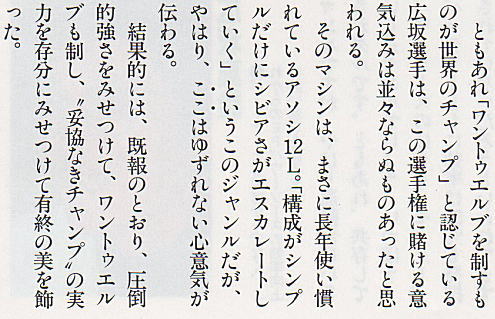 ともあれ「ワントゥエルブを制すも
のが世界のチャンプ」と認じている
広坂選手は、この選手権に賭ける意
気込みは並々ならぬものあったと思
われる。
そのマシンは、まさに長年使い慣
れているアソシ12L。「構成がシンプ
ルだけにシビアさがエスカレートし
ていく」というこのジャンルだが、
やはり、ここはゆずれない心意気が
伝わる。
結果的には、既報のとおり、圧倒
的強さをみせつけて、ワントゥエル
ブも制し、〝妥協なきチャンプ〟の実
力を存分にみせつけて有終の美を飾
った。